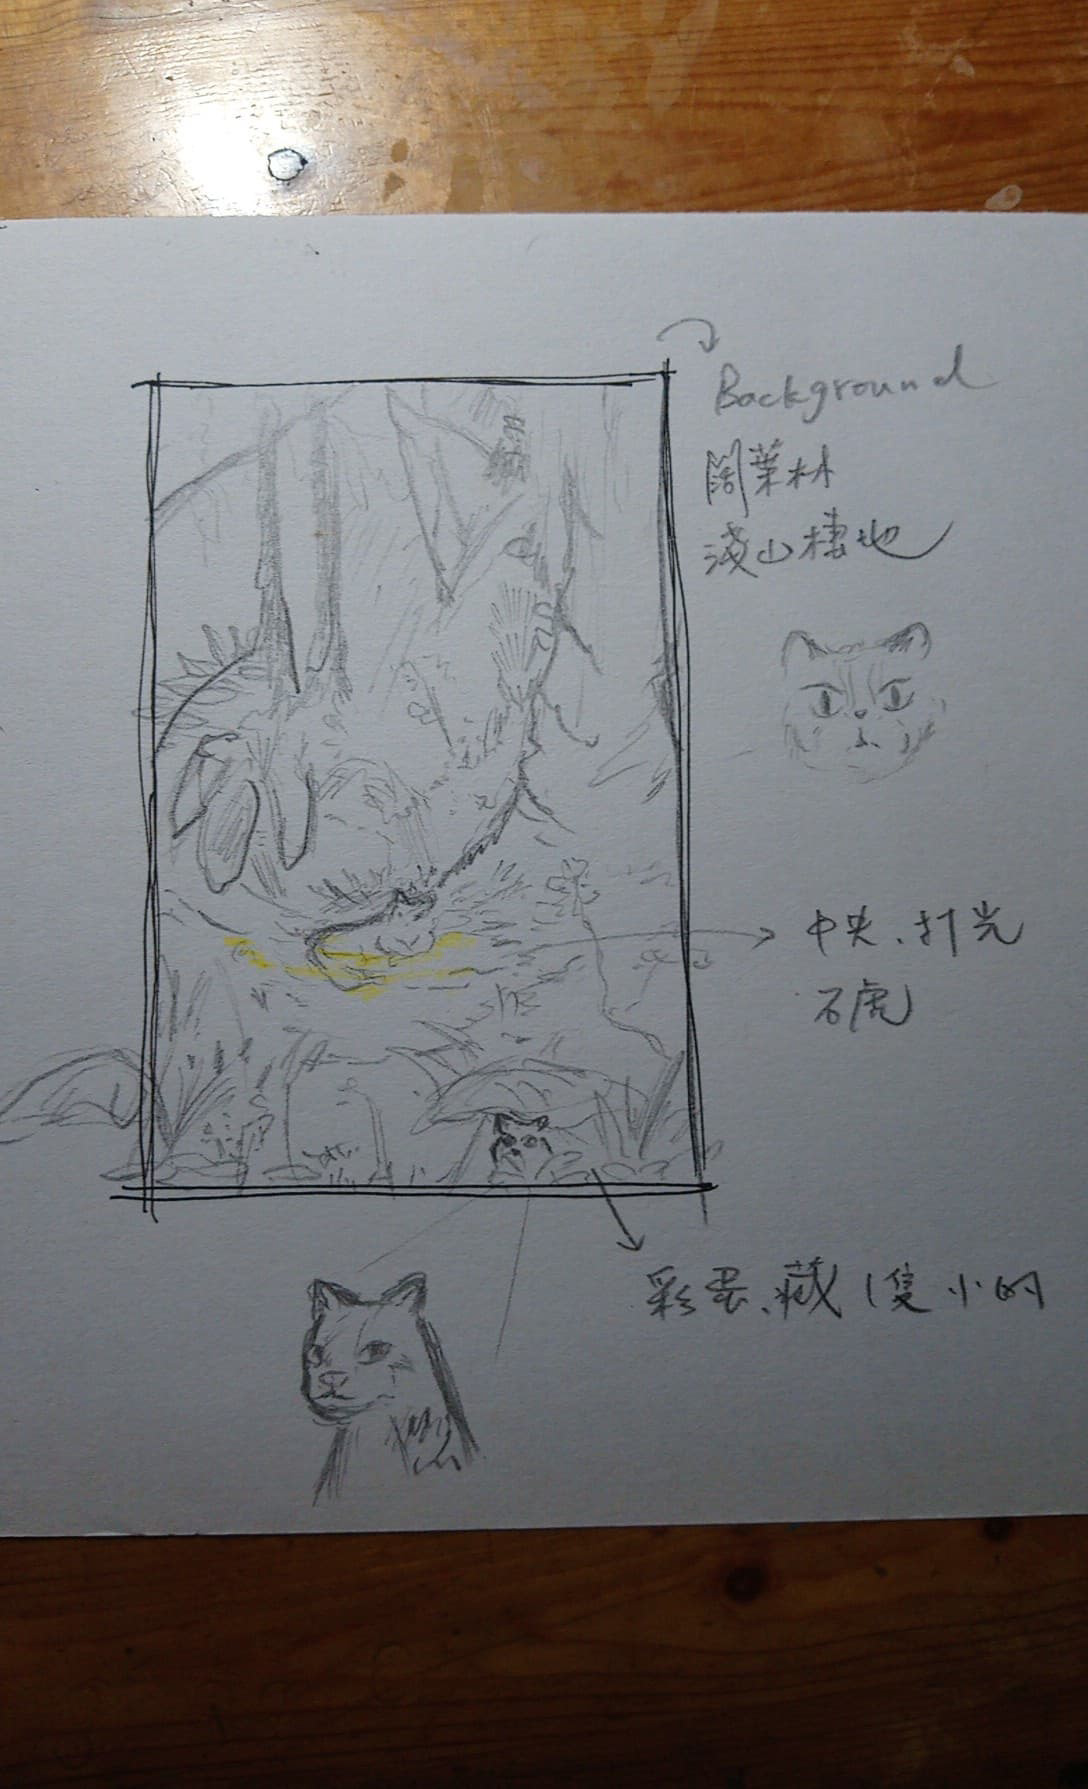 Background
闊葉林
淺山棲地
中央、打光
石虎
彩蛋、藏1隻小的